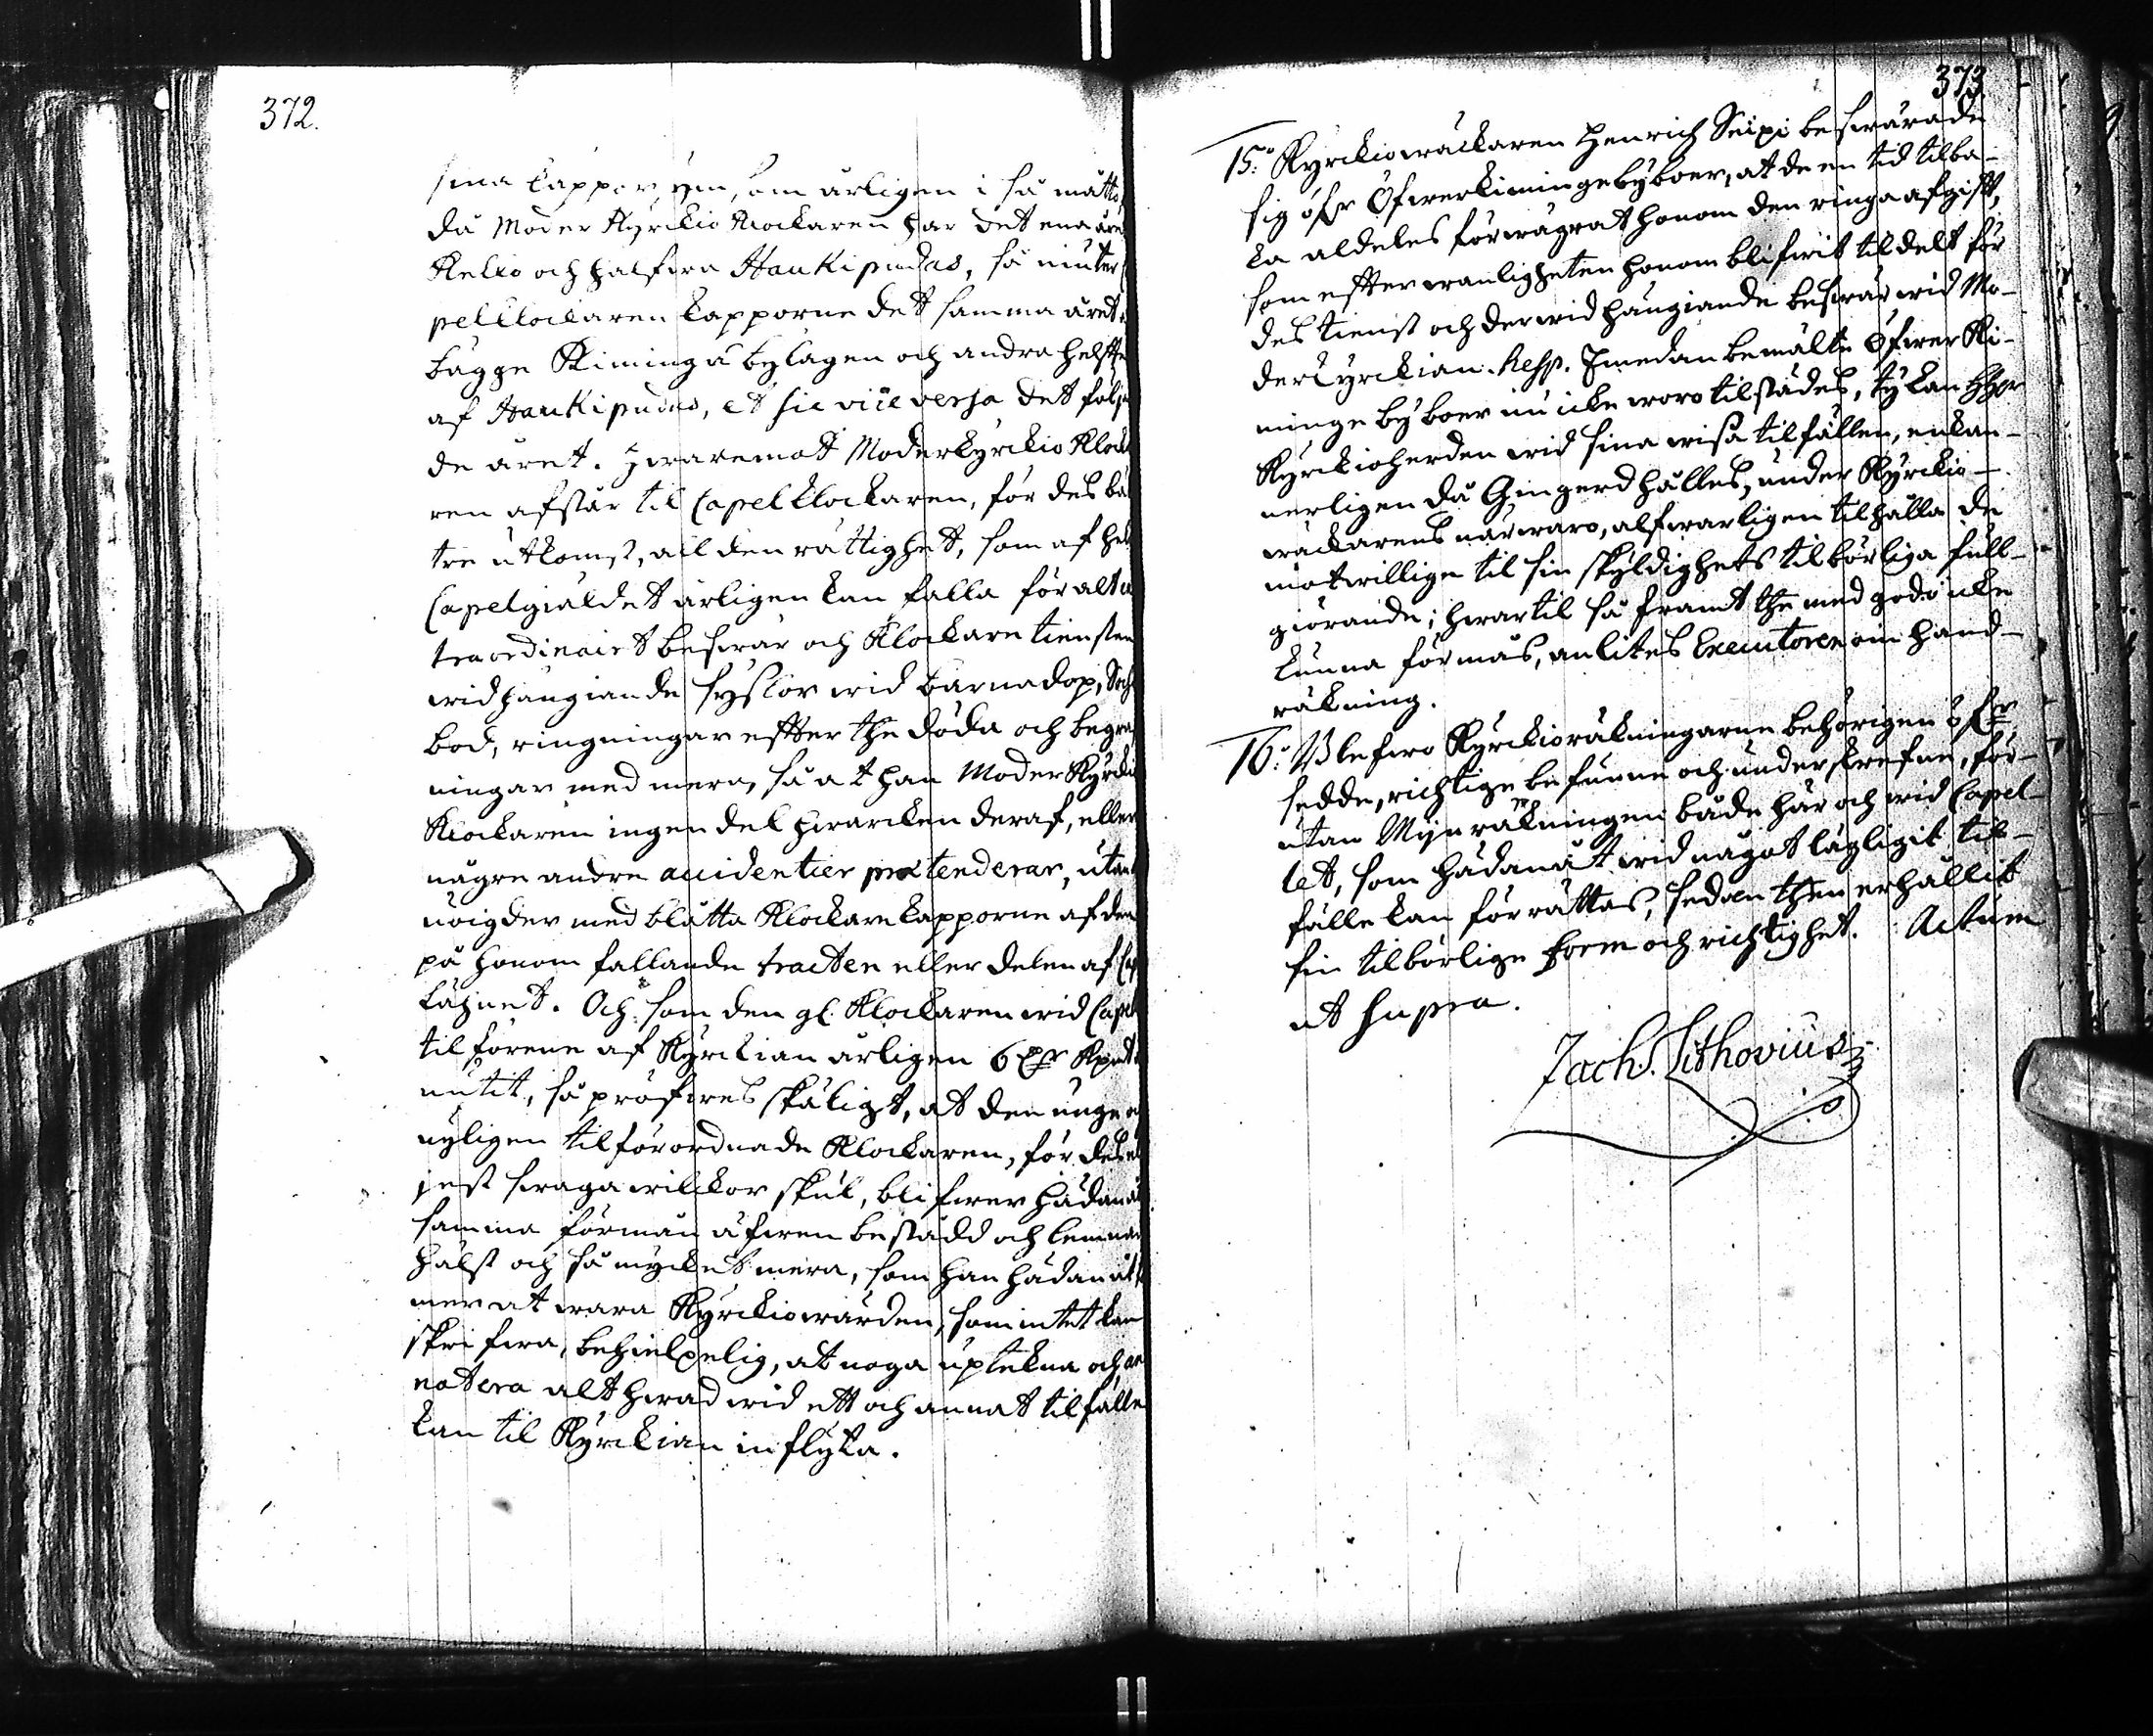 372.
sina kappor, om årligen i så måtto,
då Moder Kyrckio Klockaren har det ena året
Kello och halfwa Haukipudas, så niuter
pelklockaren kapporne det samma året
bägge Kiminga bylagen och andra helfte
af Haukipudas, et sic vice versa det följ
de året. Hwaremot Moderkyrckio Klocka
ren afstår til Capelklockaren, för des bä
tre utkomst, all den rättighet, som af hela
Capelgiäldet årligen kan falla för alt
traordinairt beswär och Klockare tiensten
widhängiande sysslor wid barnadop, Sock
bod, ringningar effter the döda och begraf
ningar med mera, så at han Moder Kyrckio
Klockaren ingen del hwarcken deraf, eller
någre andre accidentier prætenderar, utan
nöigder med blåtta Klockare kapporne af den
på honom fallande tracten eller delen af Cap
läjnet. Och som den gl. Klockaren wid Capel
til förene af Kyrckian årligen 6 Kpmt
nutit, så pröfwes skäligt, at den unge
nyligen tilförordnade Klockaren, för des
jest swaga wilckor skul, blifwer hädanåt
samma förmån äfwen bestådd och lemnad
hälst och så mycket mera, som han hädanåt
mer at wara Kyrckiowärden, som intet kan
skrifwa, behielpelig, at noga uptekna och an
notera alt hwad wid ett och annat tilfälle
kan til Kyrckian inflyta.
373.
15:o Kyrckiowäckaren Henrich Seipi beswärade
sig öfr Öfwerkiminge byboer, at de en tid tilba-
ka aldeles förwägrat honom den ringa afgift,
som effter wanligheten honom blifwit tildelt för
des tienst och derwid hängiande beswär wid Mo-
derkyrckian. Resp. Imedan bemälte Öfwer Ki-
minge byboer nu icke woro tilstädes, ty kan Hr
Kyrckioherden wid sina wissa tilfällen, enkan-
nerligen då Gingerd hålles, under Kyrckio-
wäckarens närwaro, alfwarligen tilhålla de
motwillige til sin skyldighets tilbörliga full-
giörande; hwartil så framt the med godo icke
kunna förmås, anlites Executoren om hand-
räkning.
16:o Blefwo Kyrckioräkningarne behörigen öfr
sedde, richtige befunne och underskrefne, för-
utan Mijn räkningen både här och wid Capel-
let, som hädanåt wid något lägligit til-
fälle kan förrättas, sedan then erhållit
sin tilbörlige form och richtighet. Actum
ut supra.
Zach. Lithovius